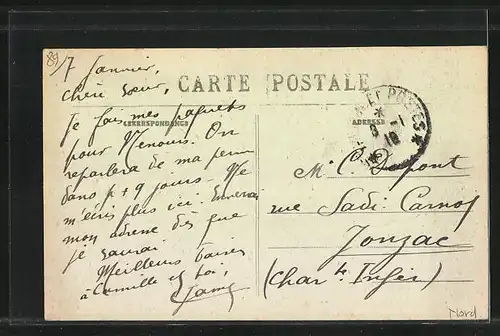 89
7 Janvier,
CARTE POSTALE
Chère Sœur,
CORRESPONDANCE
ADRESSE
Je fais mes paquets
pour Nemours. On
reparlera de ma perm
dans 8 + 9 jours. Ne
m'écris plus ici. Enverrai
mon adresse dès que
je saurai.
Meilleurs baisers
à Camille et toi,
POSTES
Mr C. Dupont
rue Sadi Carnot
Jonzac
(Charte Infér)
Nord